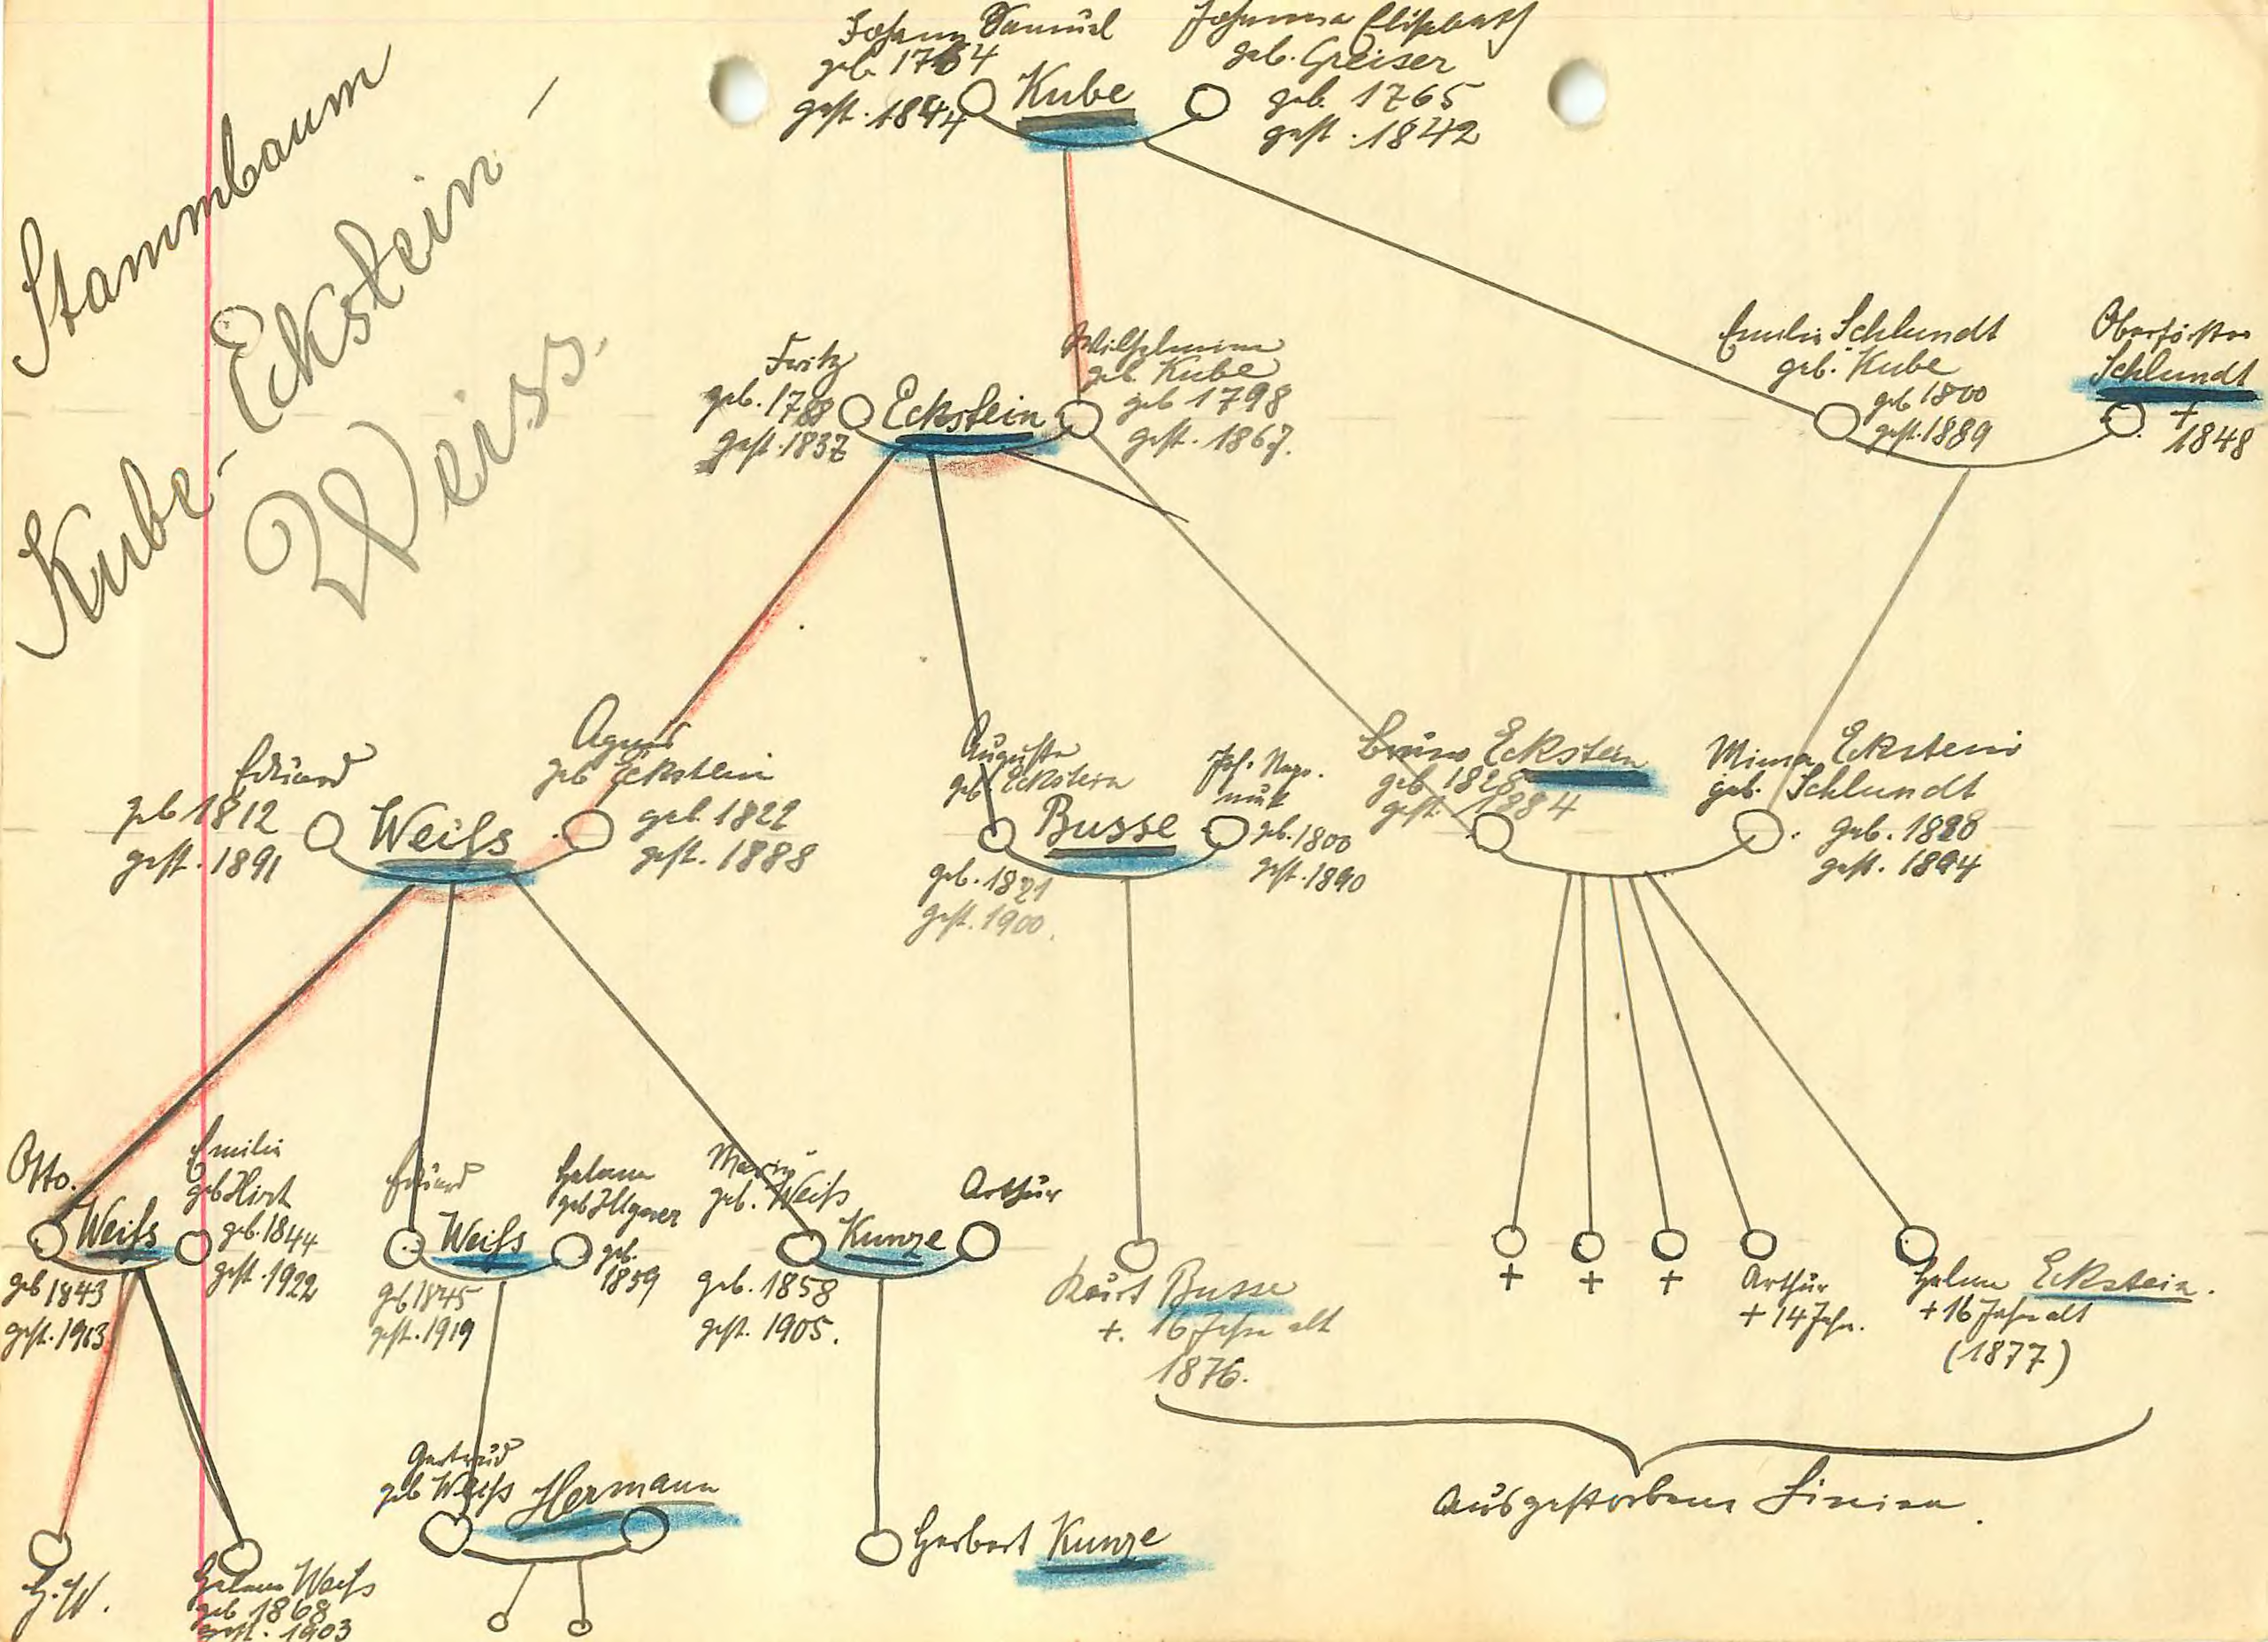 Stammbaum
Kube-
Eckstein -
Weiss.
Johann Samuel
geb. 1764
gest. 1844
Kube
Johanna Elisabeth
geb. Greiser
geb. 1765
gest. 1842
Fritz
geb. 1788
gest. 1837
Eckstein
Wilhelmine
geb. Kube
geb 1798
gest. 1867.
Emilie Schlundt
geb. Kube
geb 1800
gest. 1889
Oberförster
Schlundt
+
1848
Eduard
geb 1812
gest. 1891
Weiß
Agnes
geb Eckstein
geb. 1822
gest. 1888
Auguste
geb Eckstein
Busse
geb. 1821
gest. 1900.
Joh. Nepo-
muk
geb. 1800
gest. 1890
Bruno Eckstein
geb 1828
gest. 1884
Minna Eckstein
geb. Schlundt
geb. 1828
gest. 1894
Otto.
Weiß
geb 1843
gest. 1913
Emilie
geb Hirt
geb. 1844
gest. 1922
Eduard
Weiß
geb 1845
gest. 1919
Helene
geb Illgner
geb.
1859
Marie
geb. Weiß
Kunze
geb. 1858
gest. 1905.
Arthur
Kurt Busse
+. 16 Jahre alt
1876.
+
+
+
Arthur
+ 14 Jahr.
Helene Eckstein.
+ 16 Jahre alt
(1877)
Ausgestorbene Linien.
H.W.
Helene Weiß
geb 1868
gest. 1903
Gertrud
geb Weiß
Hermann
Herbert Kunze